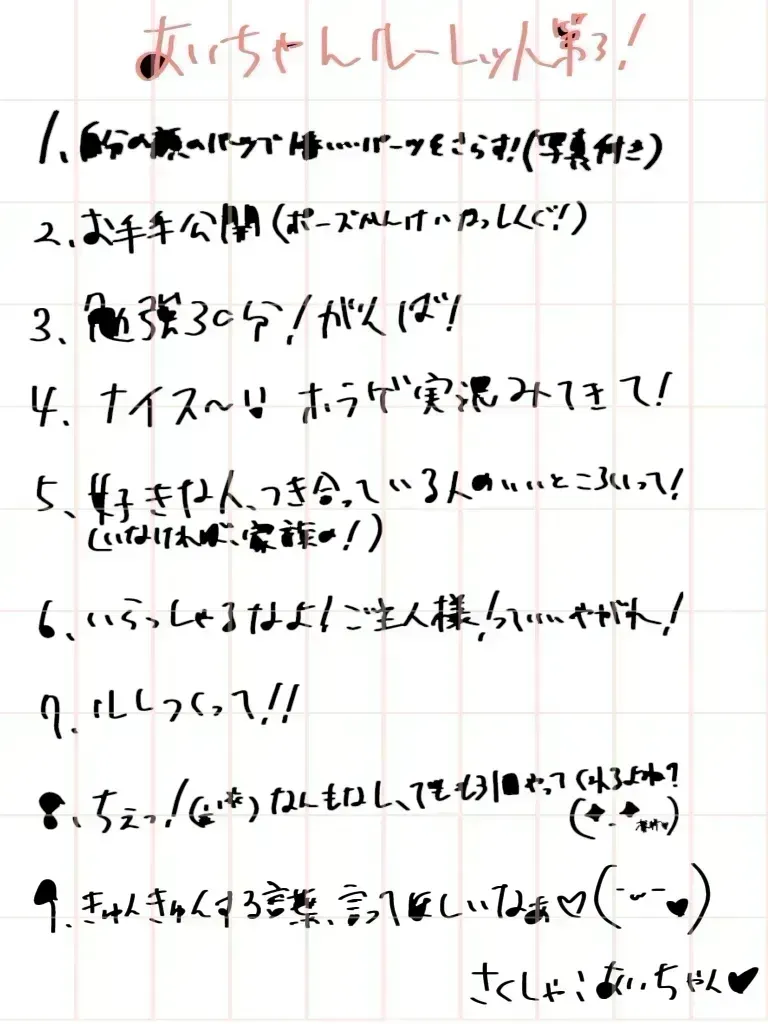 あいちゃんルーレット第3!
1、自分の顔のパーツで1番いいパーツをさらす!(写真付き)
2、お手手公開(ポーズかんけいなっしんぐ!)
3、勉強30分!がんば!
4、ナイス〜!! ホラゲ実況みてきて!
5、好きな人、つき合っている人のいいところいって!
(いなければ、家族の!)
6、いらっしゃるなよ!ご主人様!っていいやがれ!
7、ルしつくって!!
8、ちぇっ! なんもなし、でももう1回やってくれるよね?
9、きゅんきゅんする言葉、言ってほしいなぁ♡(˘⌣˘♥)
さくしゃ:あいちゃん♥